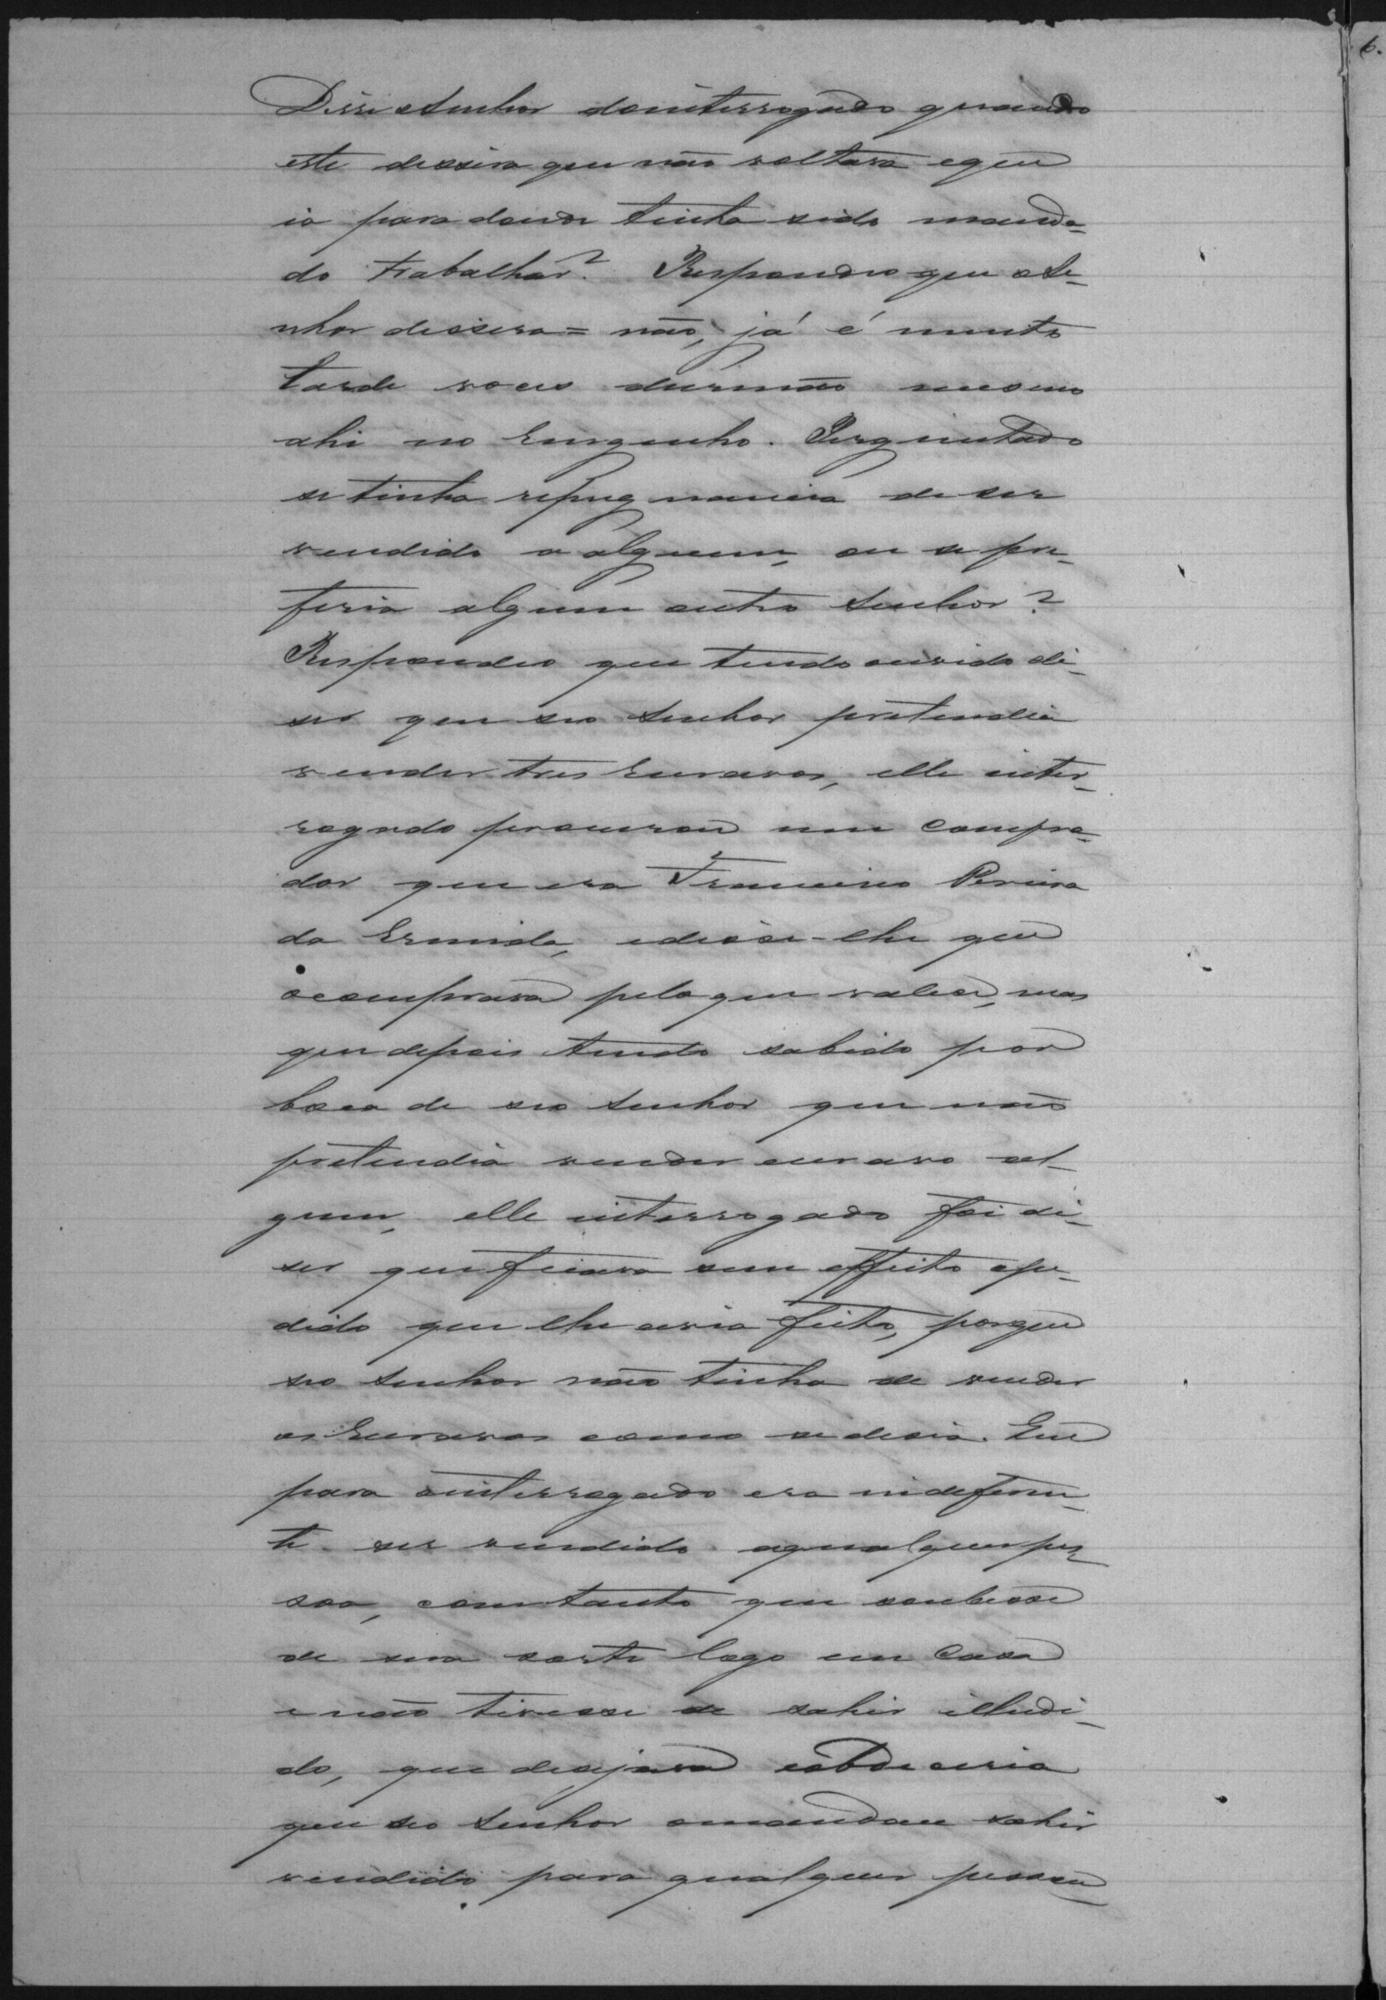 Disse o Senhor do interrogado quando
este dissera que não voltava e que
ia para donde tinha sido manda-
do trabalhar? Respondeo que o Se-
nhor dissera = não, já é muito
tarde voces durmão mesmo
ahi no Engenho. Perguntado
se tinha repugnancia de ser
vendido a alguem, ou se pre-
feria algum outro Senhor?
Respondeo que tendo ouvido di-
ser que seo Senhor pretendia
vender tres Escravos, elle inter-
rogado procurou um compra-
dor que era Francisco Pereira
da Ermida, e disse-lhe que
o comprava pelo que valese, mas
que depois tendo sabido por
boca de seo Senhor que não
pretendia vender escravo al-
gum, elle interrogado foi di-
ser que ficava sem effeito o pe-
dido que lhe avia feito, porque
seo Senhor não tinha de vender
os Escravos como se desia. Que
para o interrogado era indeferen-
te ser vendido a qualquer pes-
soa, comtanto que soubesse
de sua sorte logo em casa
e não tivesse de sahir illudi-
do, que desejava
que seo Senhor o mandou sahir
vendido para qualquer pessoa